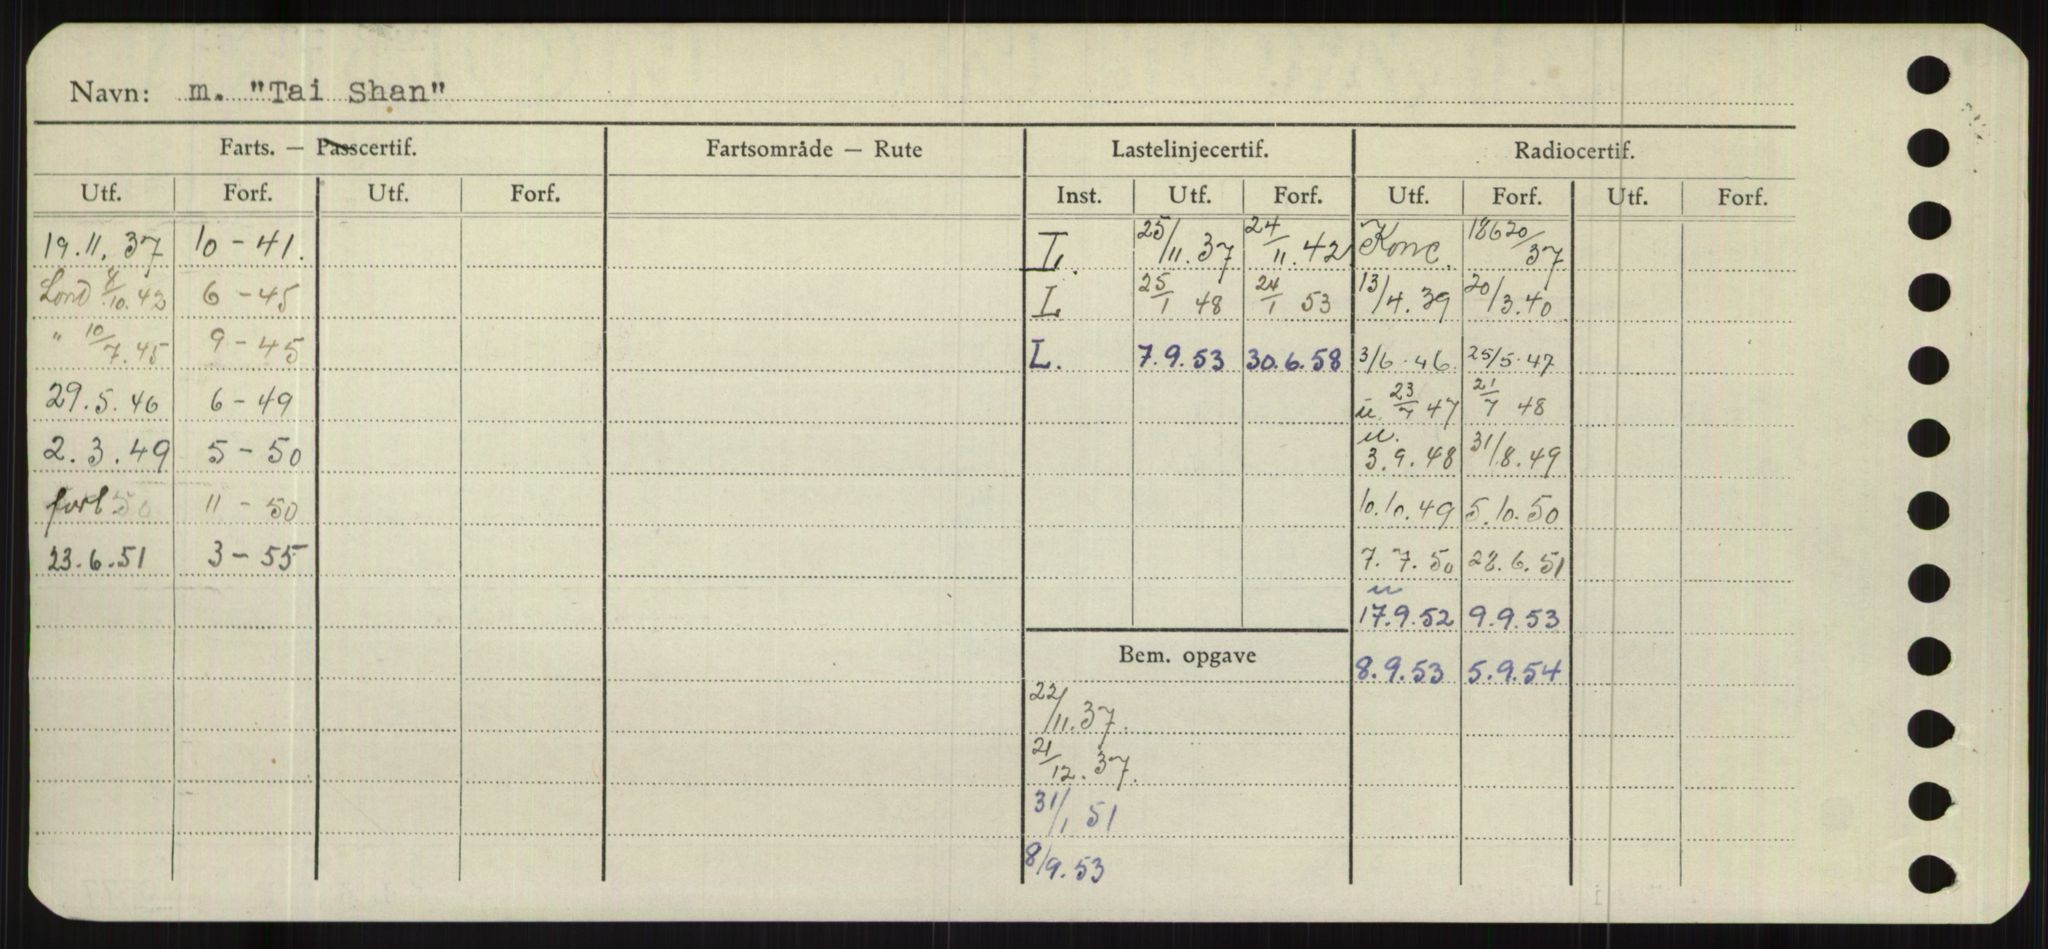 Navn: m. "Tai Shan"
Farts. — Passcertif. Fartsområde — Rute Lastelinjecertif. Radiocertif.
Utf. Forf. Utf. Forf. Inst. Utf. Forf. Utf. Forf. Utf. Forf.
19.11.37 10 - 41. L. 25/11.37 24/11.42 Konc. 18620/37
Lond 8/10.43 6 - 45 L 25/1 48 24/1 53 13/4.39 20/3.40
" 10/7.45 9 - 45 L. 7.9.53 30.6.58 3/6.46 25/5.47
29.5.46 6 - 49 u. 23/7 47 21/7 48
2.3.49 5 - 50 u. 3.9.48 31/8.49
forl 50 11 - 50 10.10.49 5.10.50
23.6.51 3 - 55 7.7.50 28.6.51
u 17.9.52 9.9.53
Bem. opgave 8.9.53 5.9.54
22/11.37.
21/12.37.
31/1 51
8/9.53